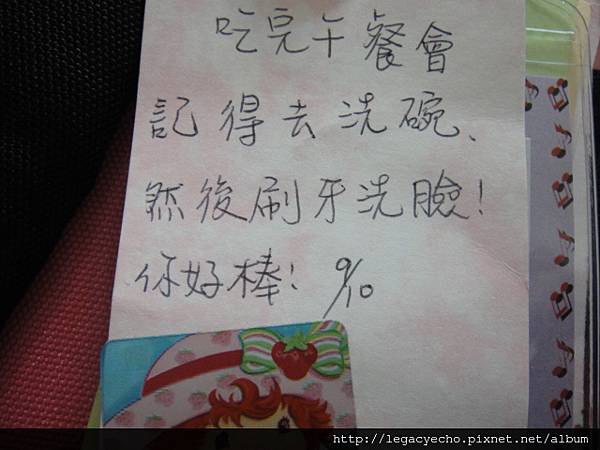 吃完午餐會
記得去洗碗、
然後刷牙洗臉!
你好棒! 9/10
http://legacyecho.pixnet.net/album